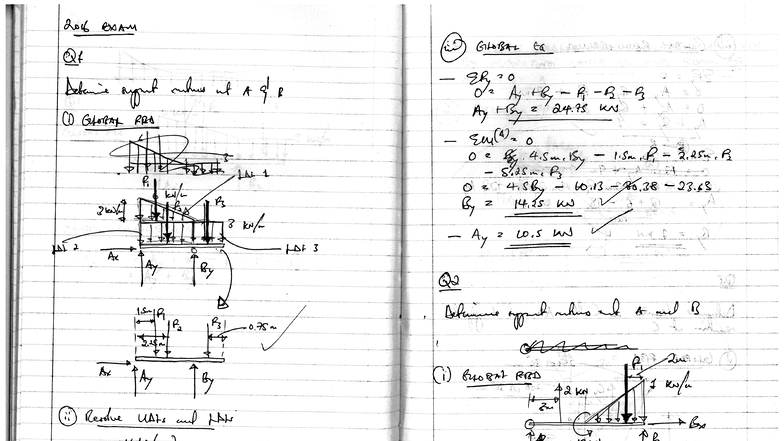 2016 EXAM
Q1
Determine support reactions at A & B
(i) GLOBAL FBD
3
P1
kN/m
LDL 1
3 kN/m
P2
P3
3 kN/m
LDL 2
LDL 3
Ax
Ay
By
1.5m
P1
P2
P3
0.75m
2.25m
Ax
Ay
By
(ii) Resolve UDLs and LDLs
(iii) GLOBAL EQ
— ΣFy = 0
0 = Ay + By - P1 - P2 - P3
Ay + By = 24.75 kN
— ΣM(A) = 0
0 = 4.5m. By - 1.5m. P1 - 2.25m. P2
- 5.25m. P3
0 = 4.5By - 10.13 - 30.38 - 23.63
By = 14.25 kN
— Ay = 10.5 kN
Q2
Determine support reactions at A and B
(i) GLOBAL FBD
2m
P1
2 kN
3m
kN/m
Bx